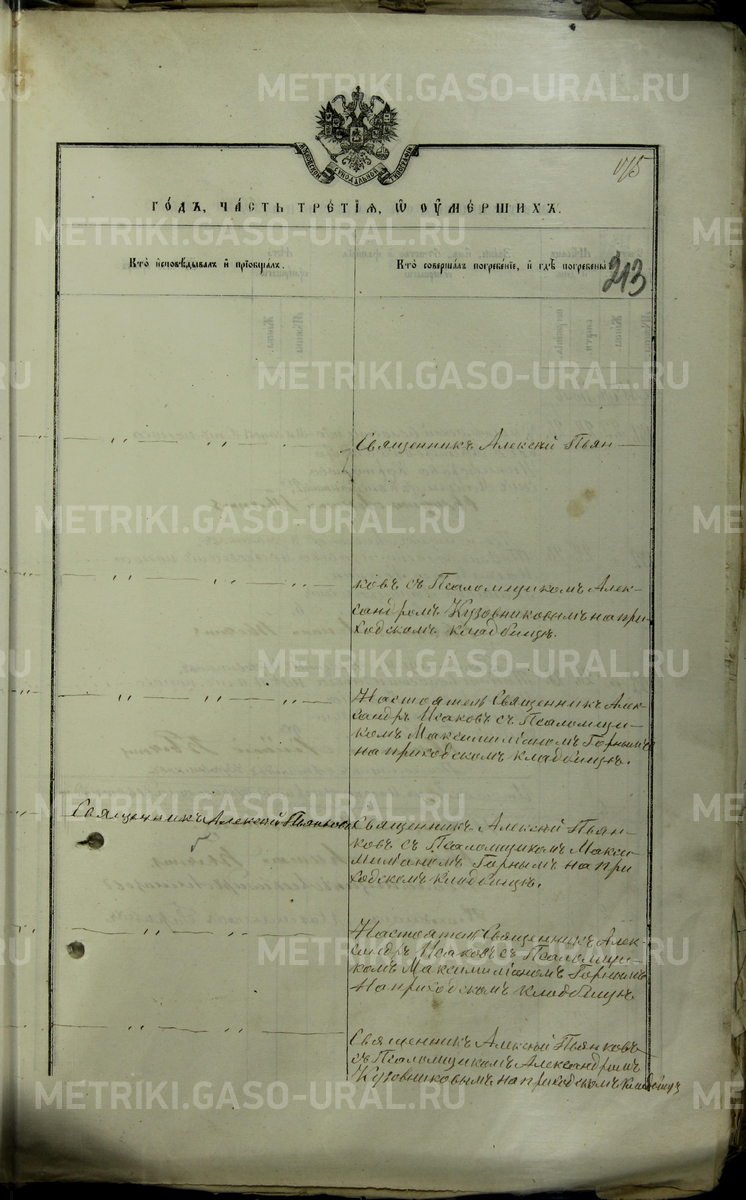 METRIKI.GASO-URAL.RU
175
ГО́ДЪ, ЧА́СТЬ ТРЕ́ТІѦ, Ѡ ОУ҆МЕ́РШИХЪ.
Кто̀ и҆сповѣ́дывалъ и҆ прїѡбща́лъ.
Кто̀ соверша́лъ погребе́нїе, и҆ гдѣ̀ погребены̀
213
Священникъ Алексій Пьян-
ковъ съ Псаломщикомъ Алек-
сандромъ Кузовниковымъ на при-
ходскомъ кладбищѣ.
Настоятель Священникъ Алек-
сандръ Исаковъ съ Псаломщи-
комъ Максимиліаномъ Горнымъ
на приходскомъ кладбищѣ.
Священникъ Алексій Пьянковъ
Священникъ Алексій Пьян-
ковъ съ Псаломщикомъ Макси-
миліаномъ Горнымъ на при
ходскомъ кладбищѣ.
Настоятель Священникъ Алек-
сандръ Исаковъ съ Псаломщи-
комъ Максимиліаномъ Горнымъ
на приходскомъ кладбищѣ.
Священникъ Алексій Пьянковъ
съ Псаломщикомъ Александромъ
Кузовниковымъ на приходскомъ кладбищѣ